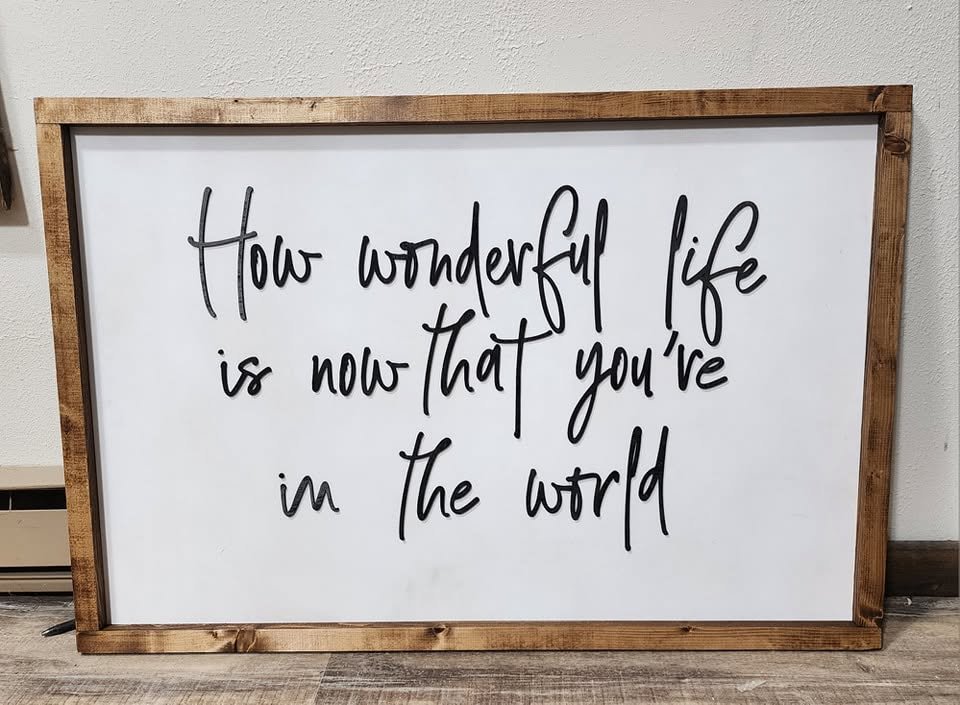 How wonderful life
is now that you're
in the world